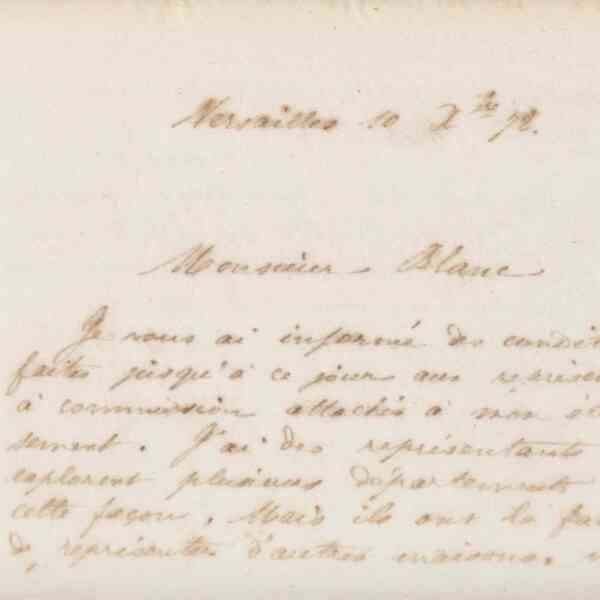 Versailles 10 Xbre 72.
Monsieur Blanc
Je vous ai informé des condit
faites jusqu'à ce jour aux représen
à commission attachés à mon é
sement. J'ai des représentants
explorent plusieurs départements
cette façon. Mais ils ont la fa
de représenter d'autres maisons.